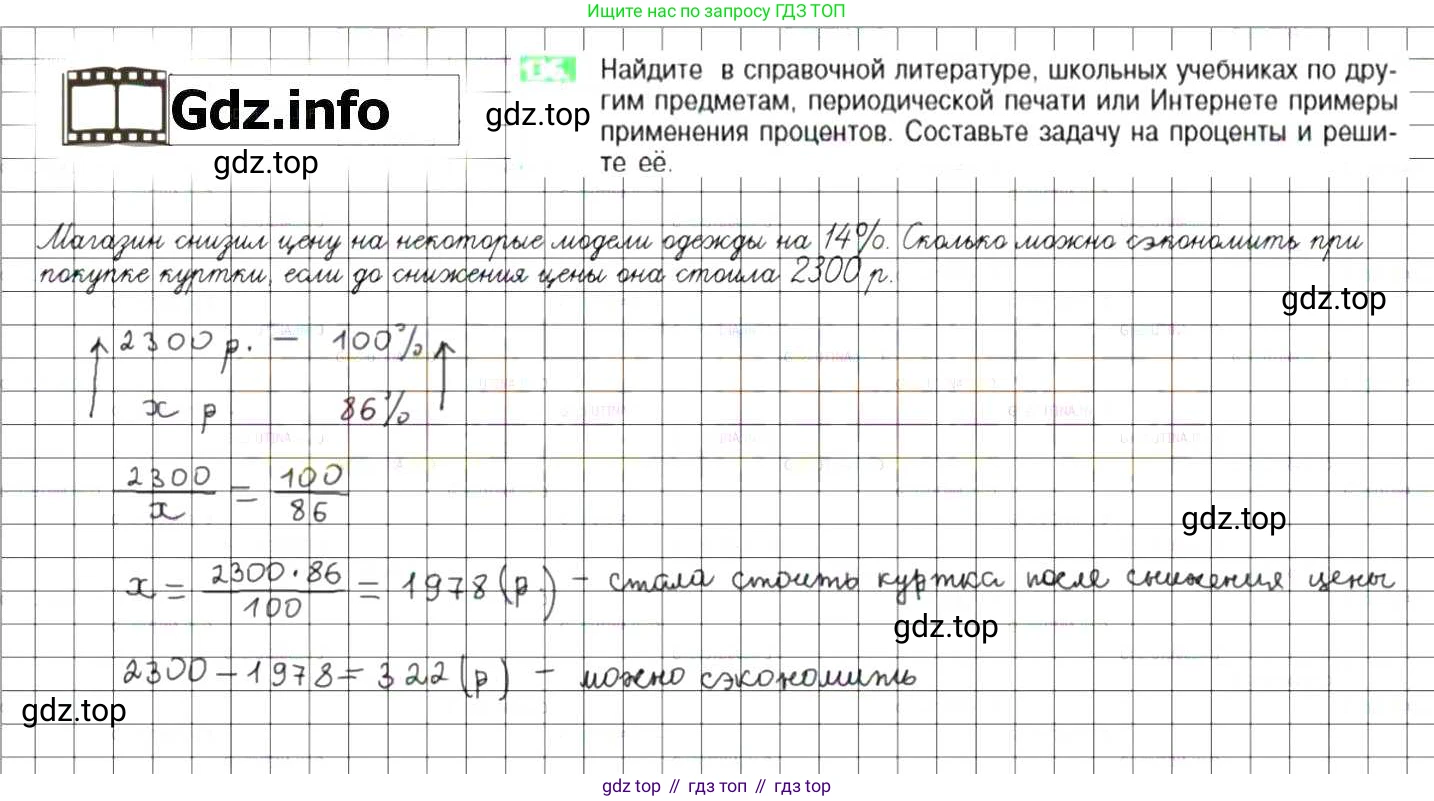 Ищите нас по запросу ГДЗ ТОП
Найдите в справочной литературе, школьных учебниках по дру-
гим предметам, периодической печати или Интернете примеры
применения процентов. Составьте задачу на проценты и реши-
те её.
Gdz.info
gdz.top
gdz.top
Магазин снизил цену на некоторые модели одежды на 14%. Сколько можно сэкономить при
покупке куртки, если до снижения цены она стоила 2300 р.
gdz.top
2300 р. — 100%
x р 86%
2300/x = 100/86
gdz.top
x = 2300·86/100 = 1978 (р.) – стала стоить куртка после снижения цены
gdz.top
2300 – 1978 = 322 (р) – можно сэкономить
gdz.top
gdz top // gdz топ // гдз top